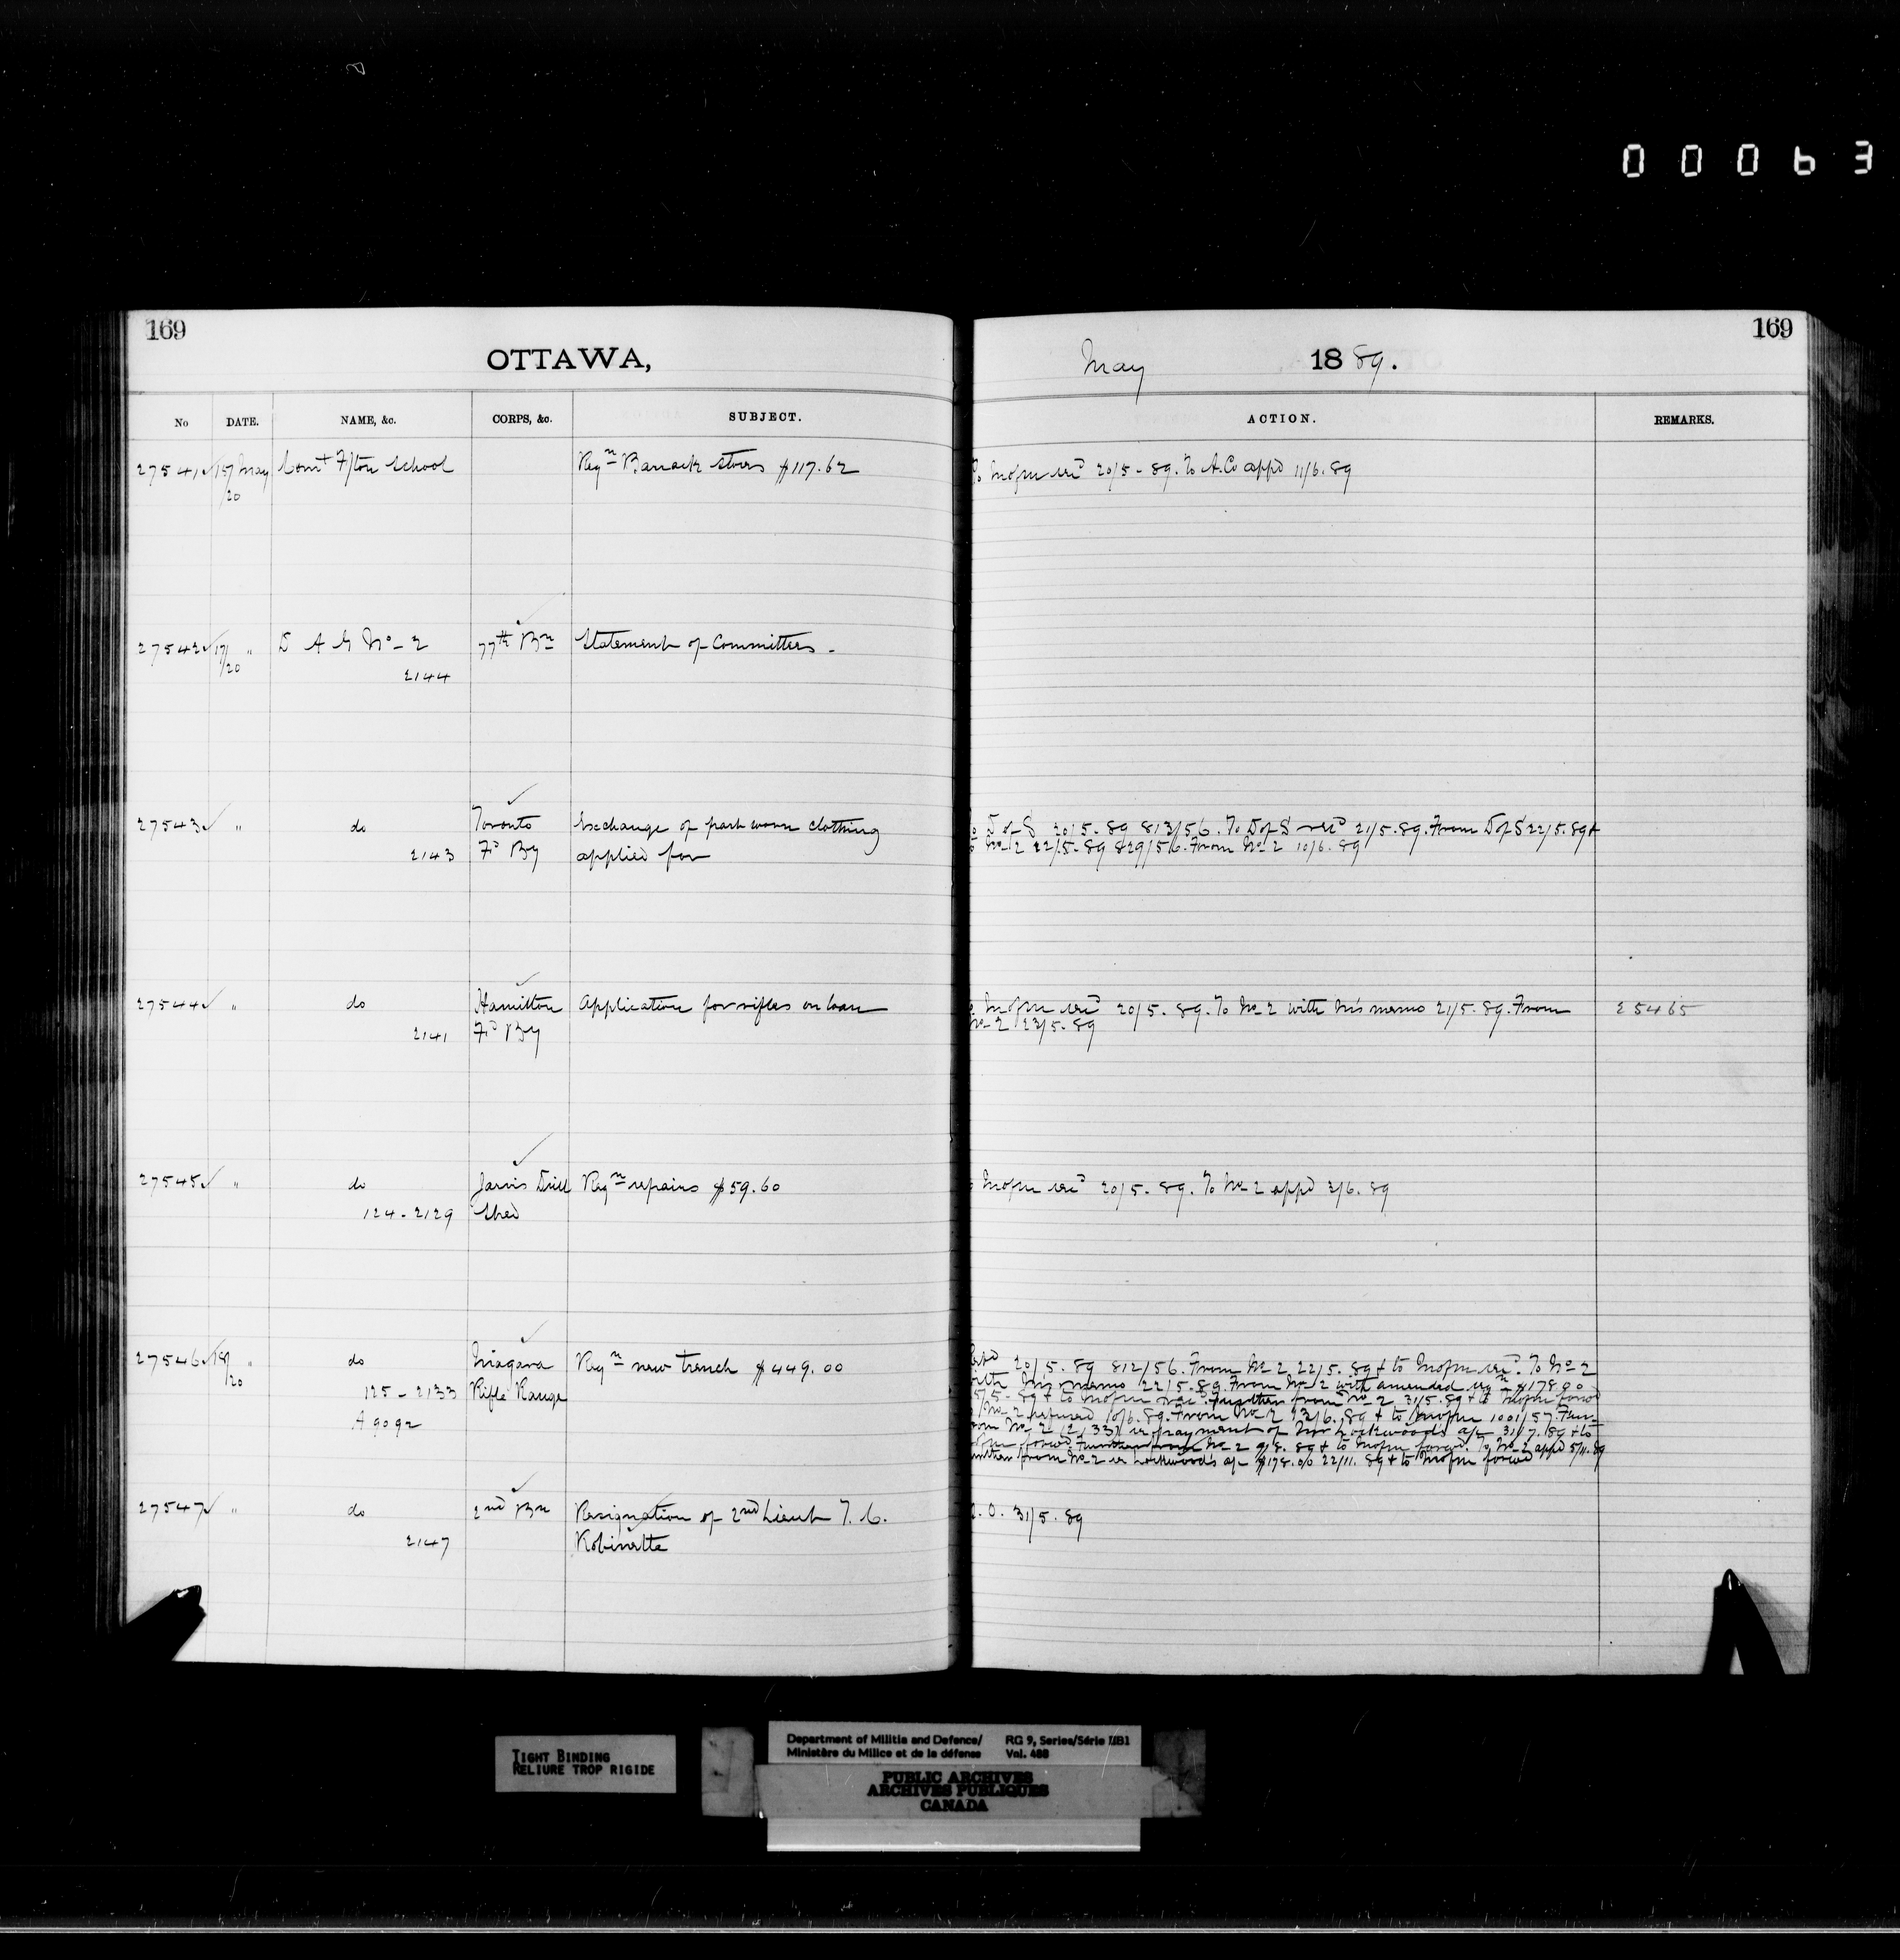 00063
169
169
OTTAWA,
May 1889.
No
DATE.
NAME, &c.
CORPS, &c.
SUBJECT.
ACTION.
REMARKS.
27541 17/20 May Comt F/ton School Reqn Barrack stores $117.62
recd 20/5-89. To A.Co appd 11/6.89
27542 17/20 " D A G No-2 77th Bn Statement of Committees -
2144
27543 " do Toronto Exchange of part worn clothing
2143 Fd By applied for
D of S 20/5-89 813/56. To D of S 21/5.89. From D of S 22/5.89 &
No-2 22/5-89 829/56. From No-2 10/6.89
27544 " do Hamilton Application for rifles on loan
2141 Fd By
recd 20/5.89. To No-2 with memo 21/5.89. From 25465
No-2 23/5.89
27545 " do Jarvis Drill Reqn repairs $59.60
124-2129 Shed
recd 20/5.89. To No-2 appd 3/6.89
27546 18/20 " do Niagara Reqn new trench $449.00
125-2133 Rifle Range
A9092
20/5.89 812/56. From No-2 22/5.89 & to To No-2
memo 22/5.89. From No-2 with amended reqn $178.00
89 & to Further from No-2 31/5.89 & to
No-2 refused 10/6.89. From No-2 13/6.89 & to 1001/57.
No-2 (2133) re payment of Mr Lockwood's a/c 31/7.89 & to
Further from No-2 9/8.89 & to To No-2 appd 5/11.89
from No-2 re Lockwood's a/c $178.00 22/11.89 & to
27547 " do 2nd Bn Resignation of 2nd Lieut T. C.
2147 Robinette
O. 31/5.89
TIGHT BINDING
RELIURE TROP RIGIDE
Department of Militia and Defence/
Ministère du Milice et de la défense
RG 9, Series/Série IIB1
Vol. 488
PUBLIC ARCHIVES
ARCHIVES PUBLIQUES
CANADA